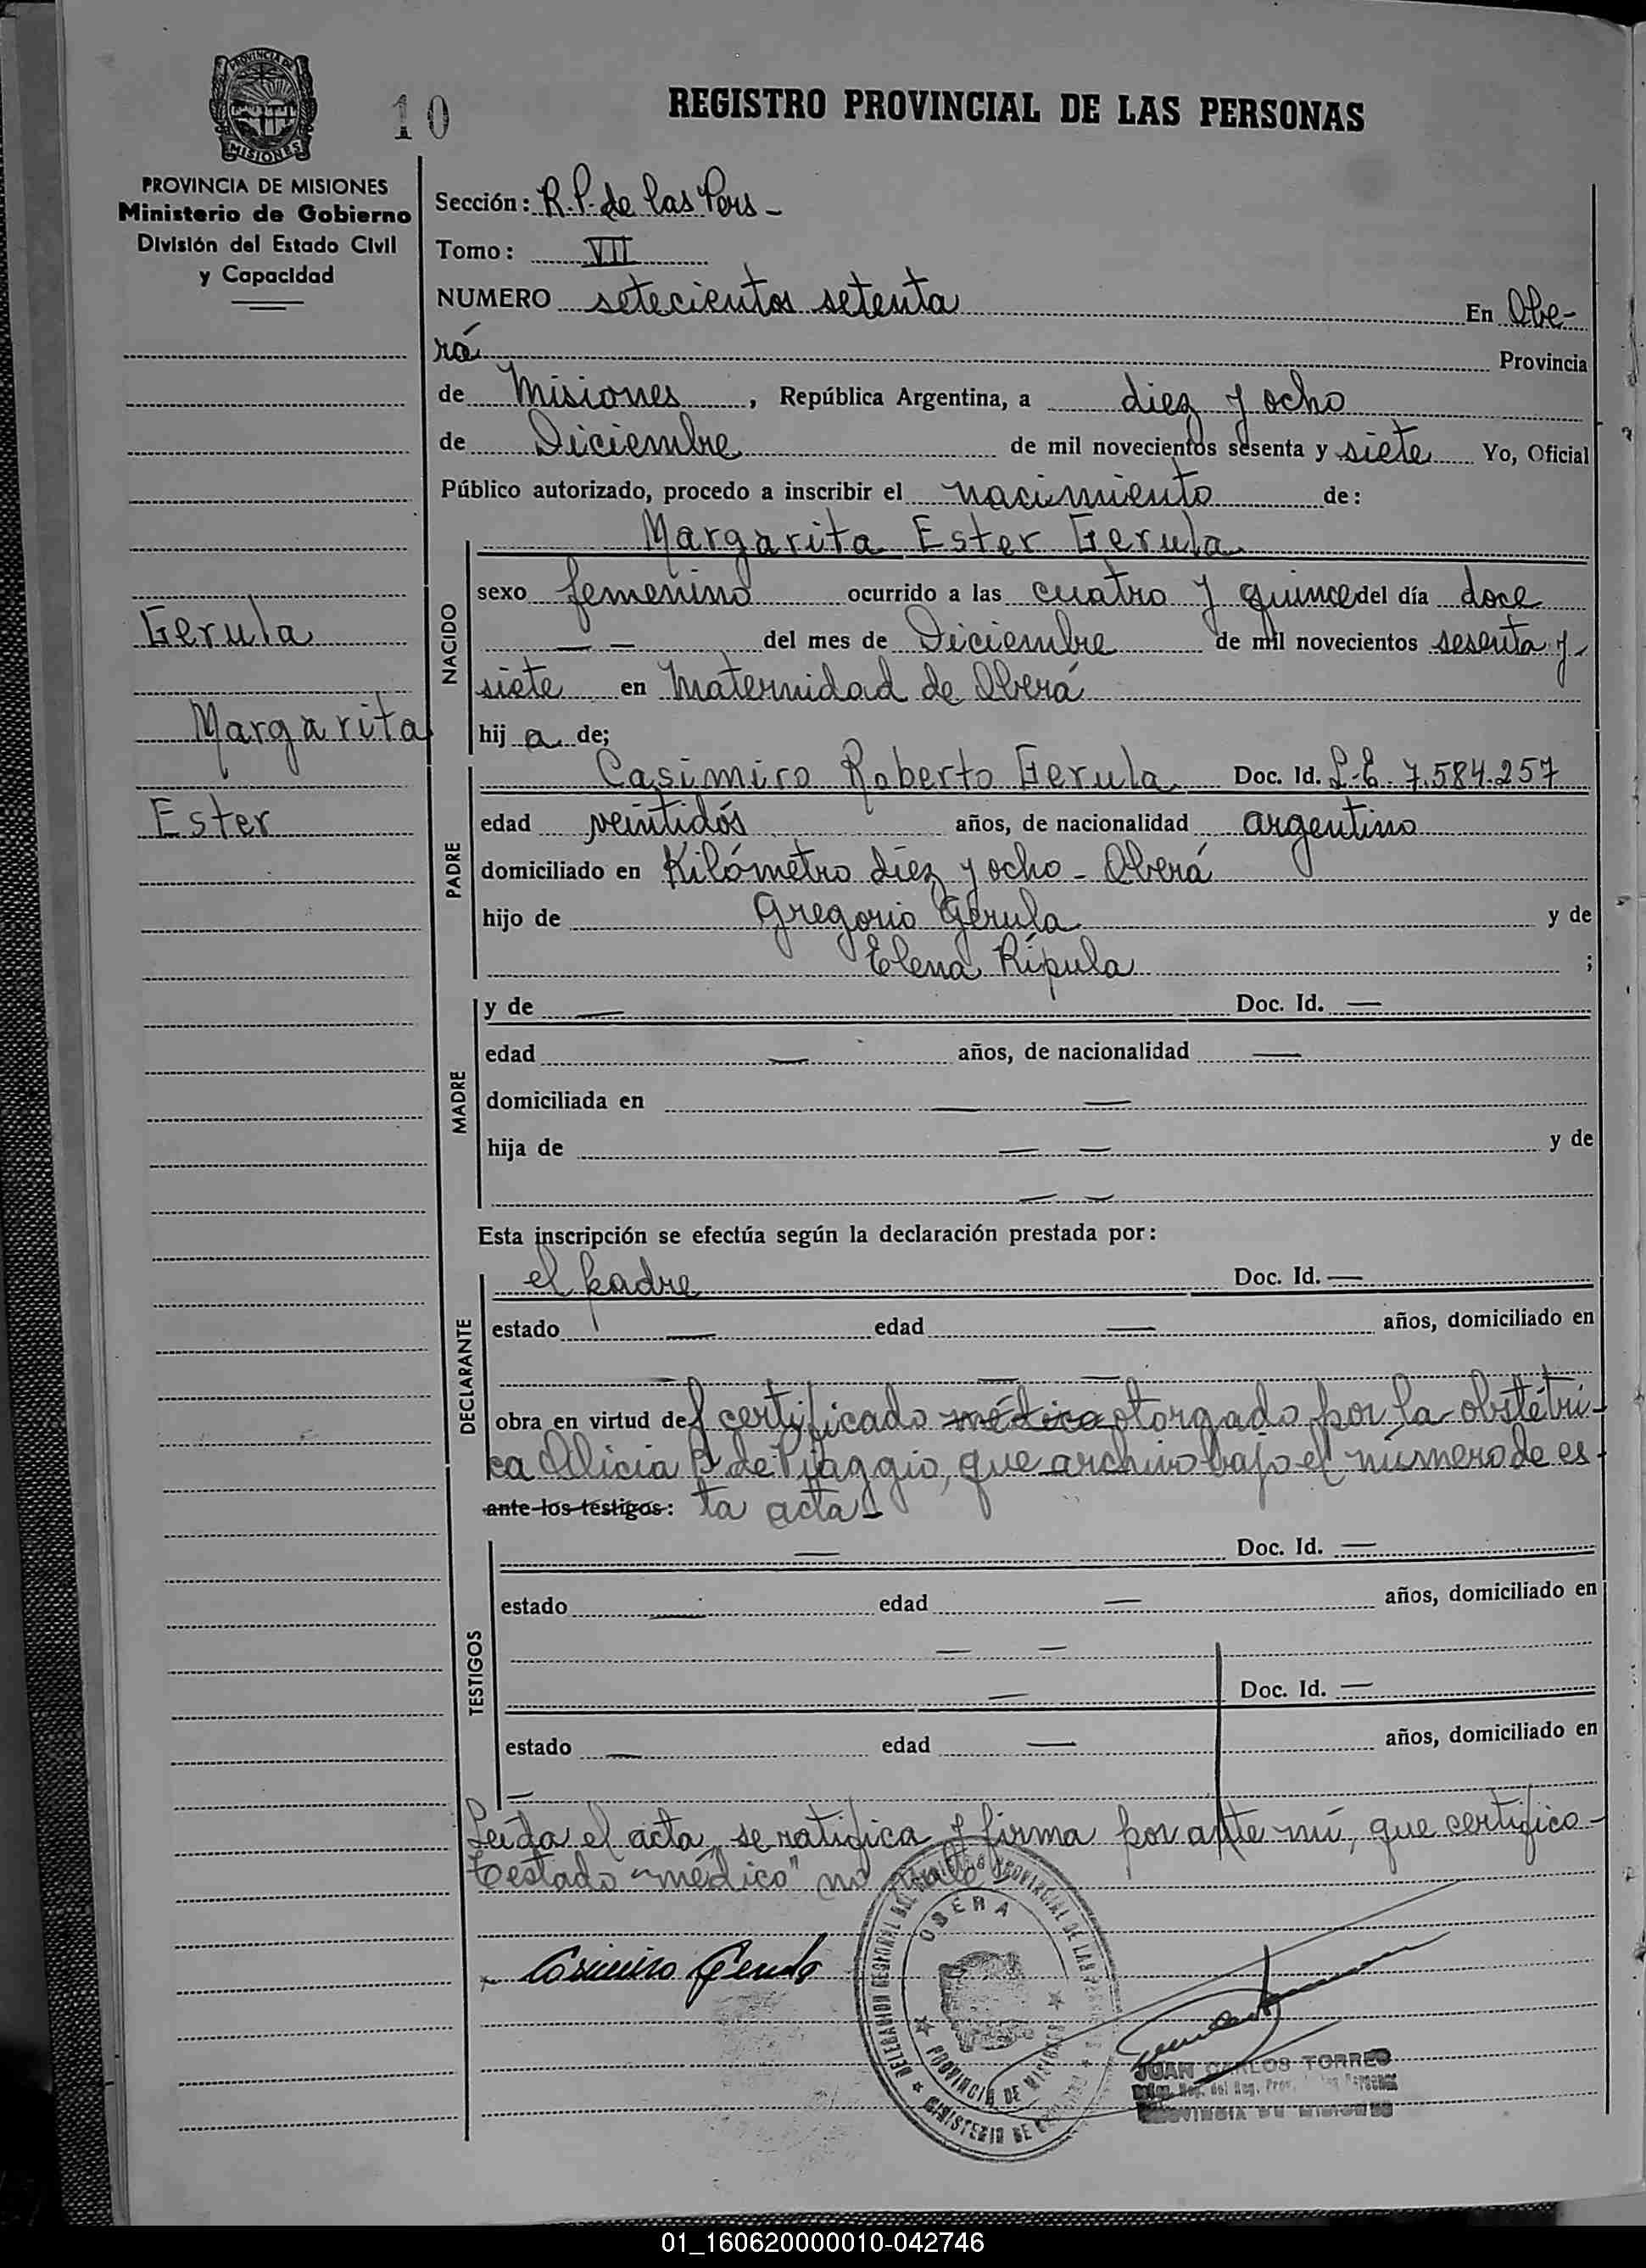 PROVINCIA DE
MISIONES
10
REGISTRO PROVINCIAL DE LAS PERSONAS
PROVINCIA DE MISIONES
Ministerio de Gobierno
División del Estado Civil
y Capacidad
Gerula
Margarita
Ester
Sección: R.P. de las Pers -
Tomo: VII
NUMERO setecientos setenta En Obe-
rá Provincia
de Misiones, República Argentina, a diez y ocho
de Diciembre de mil novecientos sesenta y siete Yo, Oficial
Público autorizado, procedo a inscribir el nacimiento de:
NACIDO
Margarita Ester Gerula
sexo femenino ocurrido a las cuatro y quince del día doce
— — del mes de Diciembre de mil novecientos sesenta y
siete en Maternidad de Oberá
hij a de;
PADRE
Casimiro Roberto Gerula Doc. Id. L.E. 7.584.257
edad veintidós años, de nacionalidad argentino
domiciliado en Kilómetro diez y ocho - Oberá
hijo de Gregorio Gerula y de
Elena Rípula ;
MADRE
y de — Doc. Id. —
edad — años, de nacionalidad —
domiciliada en — —
hija de — — y de
— —
Esta inscripción se efectúa según la declaración prestada por:
DECLARANTE
el padre Doc. Id. —
estado — edad — años, domiciliado en
— — —
obra en virtud del certificado médico otorgado por la obstétri-
ca Alicia P. de Piaggio, que archivo bajo el número de es-
ante los testigos: ta acta -
TESTIGOS
— Doc. Id. —
estado — edad — años, domiciliado en
— —
— Doc. Id. —
estado — edad — años, domiciliado en
—
Leída el acta, se ratifica y firma por ante mí, que certifico -
Testado "médico" no vale
Casimiro Gerula
OBERA
PROVINCIA DE MISIONES
JUAN CARLOS TORRES
PROVINCIA DE MISIONES
01_160620000010-042746